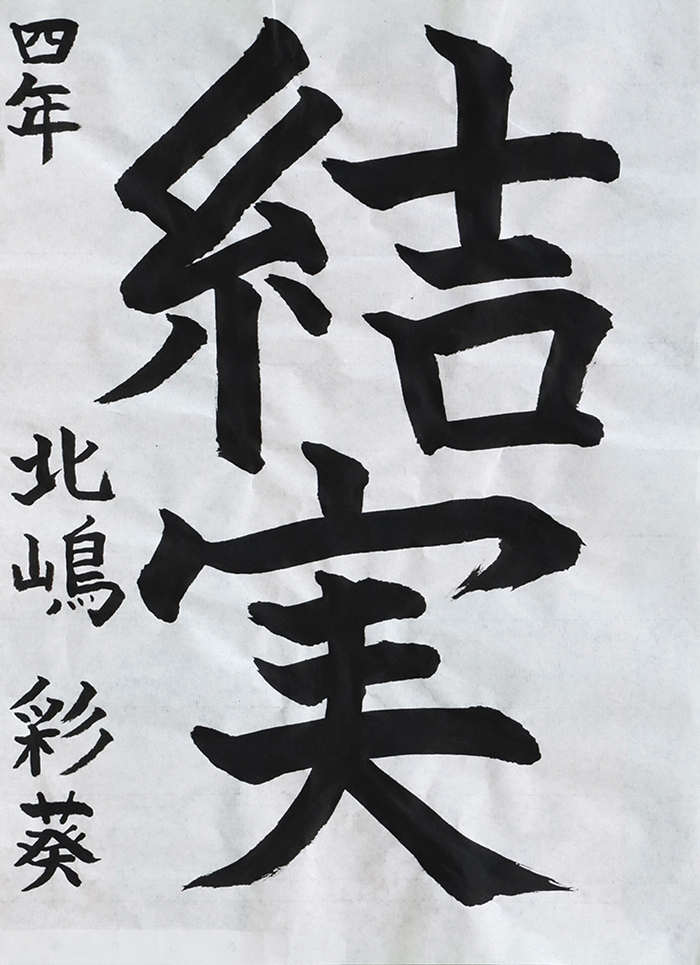 結実
四年 北嶋 彩葵